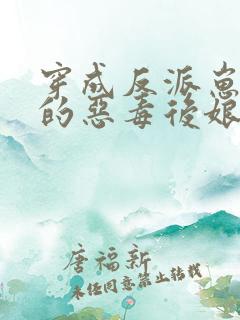 穿成反派崽
的惡毒後娘
唐福新
未经同意禁止转载